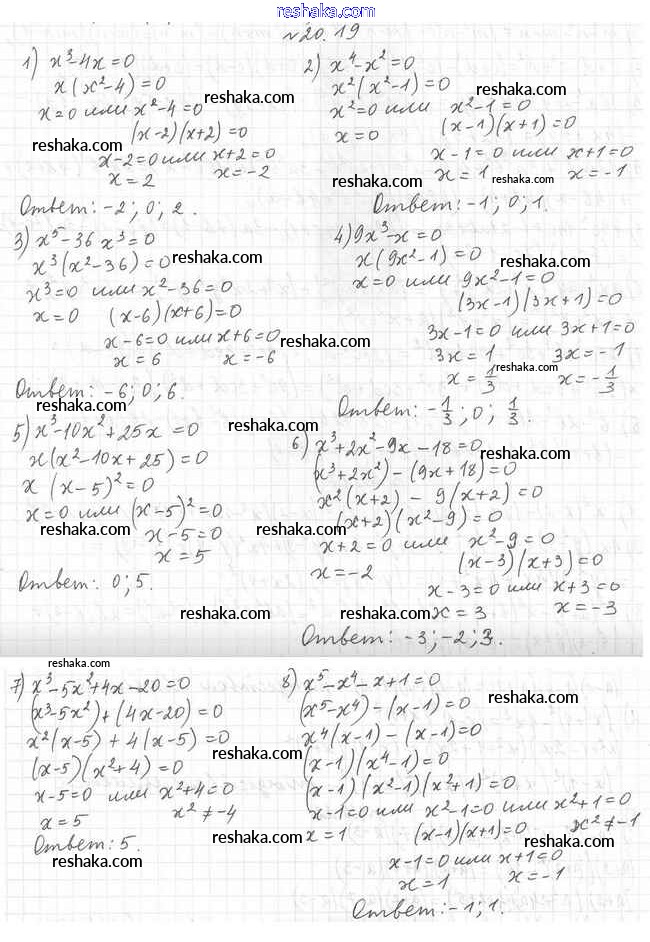 www.reshaka.com
№20.19
1) x³-4x=0
x(x²-4)=0
x=0 или x²-4=0
reshaka.com
(x-2)(x+2)=0
reshaka.com
x-2=0 или x+2=0
x=2 x=-2
Ответ: -2; 0; 2.
2) x⁴-x²=0
x²(x²-1)=0
x²=0 или x²-1=0
reshaka.com
x=0 (x-1)(x+1)=0
x-1=0 или x+1=0
reshaka.com
x=1 reshaka.com x=-1
Ответ: -1; 0; 1.
3) x⁵-36x³=0
reshaka.com
x³(x²-36)=0
x³=0 или x²-36=0
x=0 (x-6)(x+6)=0
x-6=0 или x+6=0
reshaka.com
x=6 x=-6
Ответ: -6; 0; 6.
reshaka.com
4) 9x³-x=0
x(9x²-1)=0
reshaka.com
x=0 или 9x²-1=0
(3x-1)(3x+1)=0
3x-1=0 или 3x+1=0
3x=1 3x=-1
reshaka.com
x=1/3 x=-1/3
Ответ: -1/3; 0; 1/3.
reshaka.com
5) x³-10x²+25x=0
x(x²-10x+25)=0
x(x-5)²=0
x=0 или (x-5)²=0
reshaka.com
x-5=0
x=5
Ответ: 0; 5.
reshaka.com
6) x³+2x²-9x-18=0
reshaka.com
(x³+2x²)-(9x+18)=0
x²(x+2)-9(x+2)=0
(x+2)(x²-9)=0
reshaka.com
x+2=0 или x²-9=0
x=-2 (x-3)(x+3)=0
x-3=0 или x+3=0
reshaka.com
x=3 x=-3
Ответ: -3; -2; 3.
reshaka.com
7) x³-5x²+4x-20=0
(x³-5x²)+(4x-20)=0
x²(x-5)+4(x-5)=0
reshaka.com
(x-5)(x²+4)=0
x-5=0 или x²+4=0
x=5 x²≠-4
reshaka.com
Ответ: 5.
reshaka.com
8) x⁵-x⁴-x+1=0
reshaka.com
(x⁵-x⁴)-(x-1)=0
x⁴(x-1)-(x-1)=0
(x-1)(x⁴-1)=0
reshaka.com
(x-1)(x²-1)(x²+1)=0
x-1=0 или x²-1=0 или x²+1=0
x=1 (x-1)(x+1)=0 x²≠-1
reshaka.com
x-1=0 или x+1=0
x=1 x=-1
Ответ: -1; 1.
reshaka.com